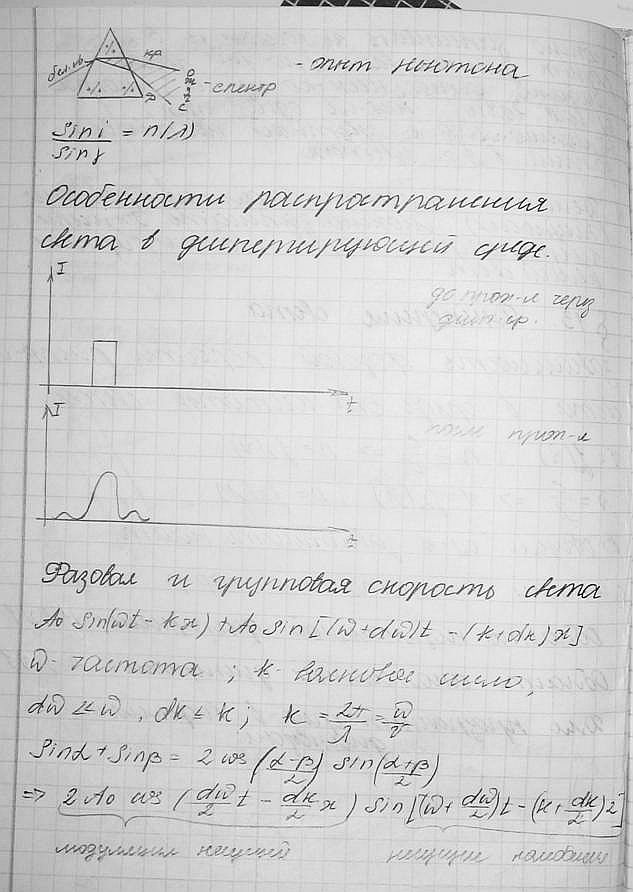 бел. св.
кр
О
Ж
З
Г
С
Ф
- спектр
- опыт Ньютона
sin i / sin γ = n(λ)
Особенности распространения
света в диспергирующей среде.
I
до прох-я через
дисп. ср.
t
I
после прох-я
t
Фазовая и групповая скорость света
A₀ sin(ωt - kx) + A₀ sin[(ω+dω)t - (k+dk)x]
ω - частота ; k - волновое число,
dω << ω, dk << k ; k = 2π/λ = ω/v
sinα + sinβ = 2 cos (α-β / 2) sin (α+β / 2)
=> 2 A₀ cos (dω/2 t - dk/2 x) sin[(ω + dω/2)t - (k + dk/2)x]
модуляция несущей несущие колебания